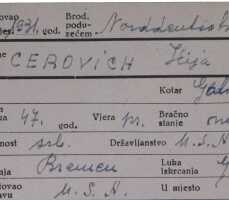 ovao 1931. god. Brod, podu-
zećem. Norddeutsch
me CEROVICH Ilija
Kotar
na 47. god. Vjera pr. Bračno stanje
nost srb. Državljanstvo U.S.A.
nja Bremen Luka iskrcanja
tovao
avu U.S.A. U mjesto